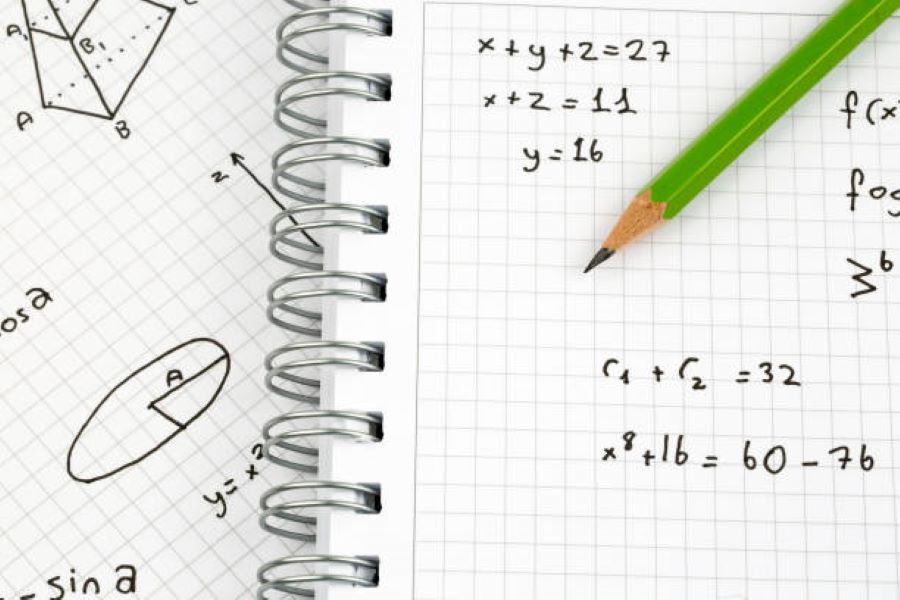 A₁
B₁
A
B
z
osa
A
y = x²
- sin a
x + y + z = 27
x + z = 11
y = 16
f(x
fog
Σ⁶
r₁ + r₂ = 32
x⁸ + 16 = 60 - 76